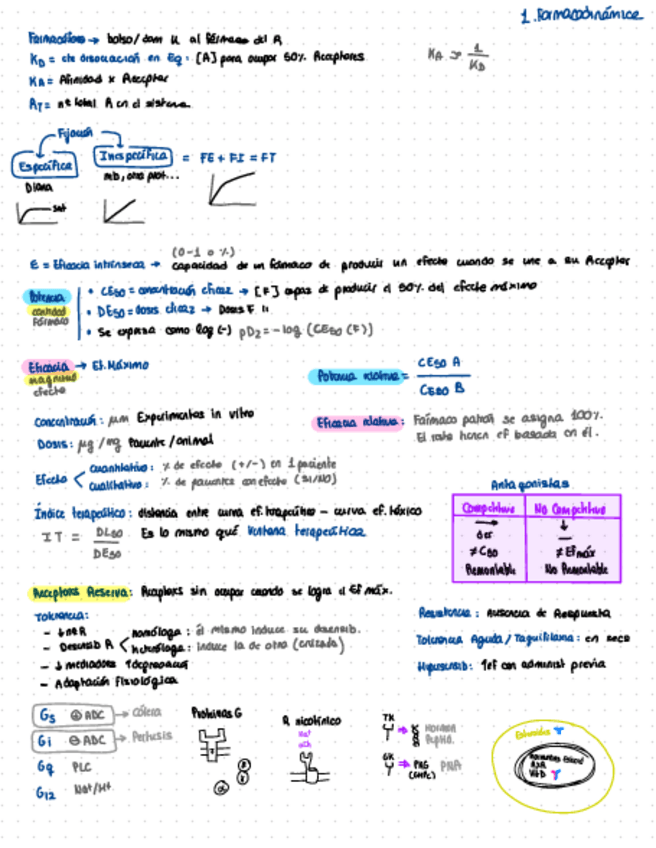 1. Farmacodinámica
Farmacóforo → bolso/dom U al fármaco del R
KD = cte disociación en Eq: [A] para ocupar 50% Receptores
KA = Afinidad x Receptor
KA → 1/KD
RT = nº total R en el sistema
Fijación
Específica Inespecífica = FE + FI = FT
Diana mb, otra prot...
sat
(0-1 o %)
E = Eficacia intrínseca → capacidad de un fármaco de producir un efecto cuando se une a su Receptor
Potencia
cantidad
Fármaco
• CE50 = concentración eficaz → [F] capaz de producir el 50% del efecto máximo
• DE50 = dosis eficaz → Dosis F "
• Se expresa como log (-) pD2 = -log (CE50 (F))
Eficacia → Ef. Máximo
magnitud
efecto
Potencia relativa = CE50 A / CE50 B
Concentración: µM Experimentos in vitro
Dosis: µg / mg Paciente / animal
Eficacia relativa: Fármaco patrón se asigna 100%.
El resto tienen ef basada en él.
Efecto
cuantitativo: % de efecto (+/-) en 1 paciente
cualitativo: % de pacientes con efecto (SI/NO)
Índice terapéutico: distancia entre curva ef. terapéutico - curva ef. tóxico
IT = DL50 / DE50 Es lo mismo qué Ventana terapéutica
Antagonistas
Competitivo No Competitivo
→ ↓
der
≠ C50 ≠ Efmáx
Remontable No Remontable
Receptors Reserva: Receptors sin ocupar cuando se logra el Ef máx.
Tolerancia:
- ↓ nº R
- Desensib R
homóloga: él mismo induce su desensib.
heteróloga: induce la de otro (cruzada)
- ↓ mediadores ↑ degradación
- Adaptación fisiológica
Resistencia: Ausencia de Respuesta
Tolerancia Aguda / Taquifilaxia: en seco
Hipersensib: ↑ef con administ previa
Gs ⊕ ADC → cólera
Gi ⊖ ADC → Pertusis
Gq PLC
G12 Na+/H+
Proteínas G
R nicotínico
Na+
ACh
TK
GK
PKG
(GMPc)
PNA
Esteroides
Vit D